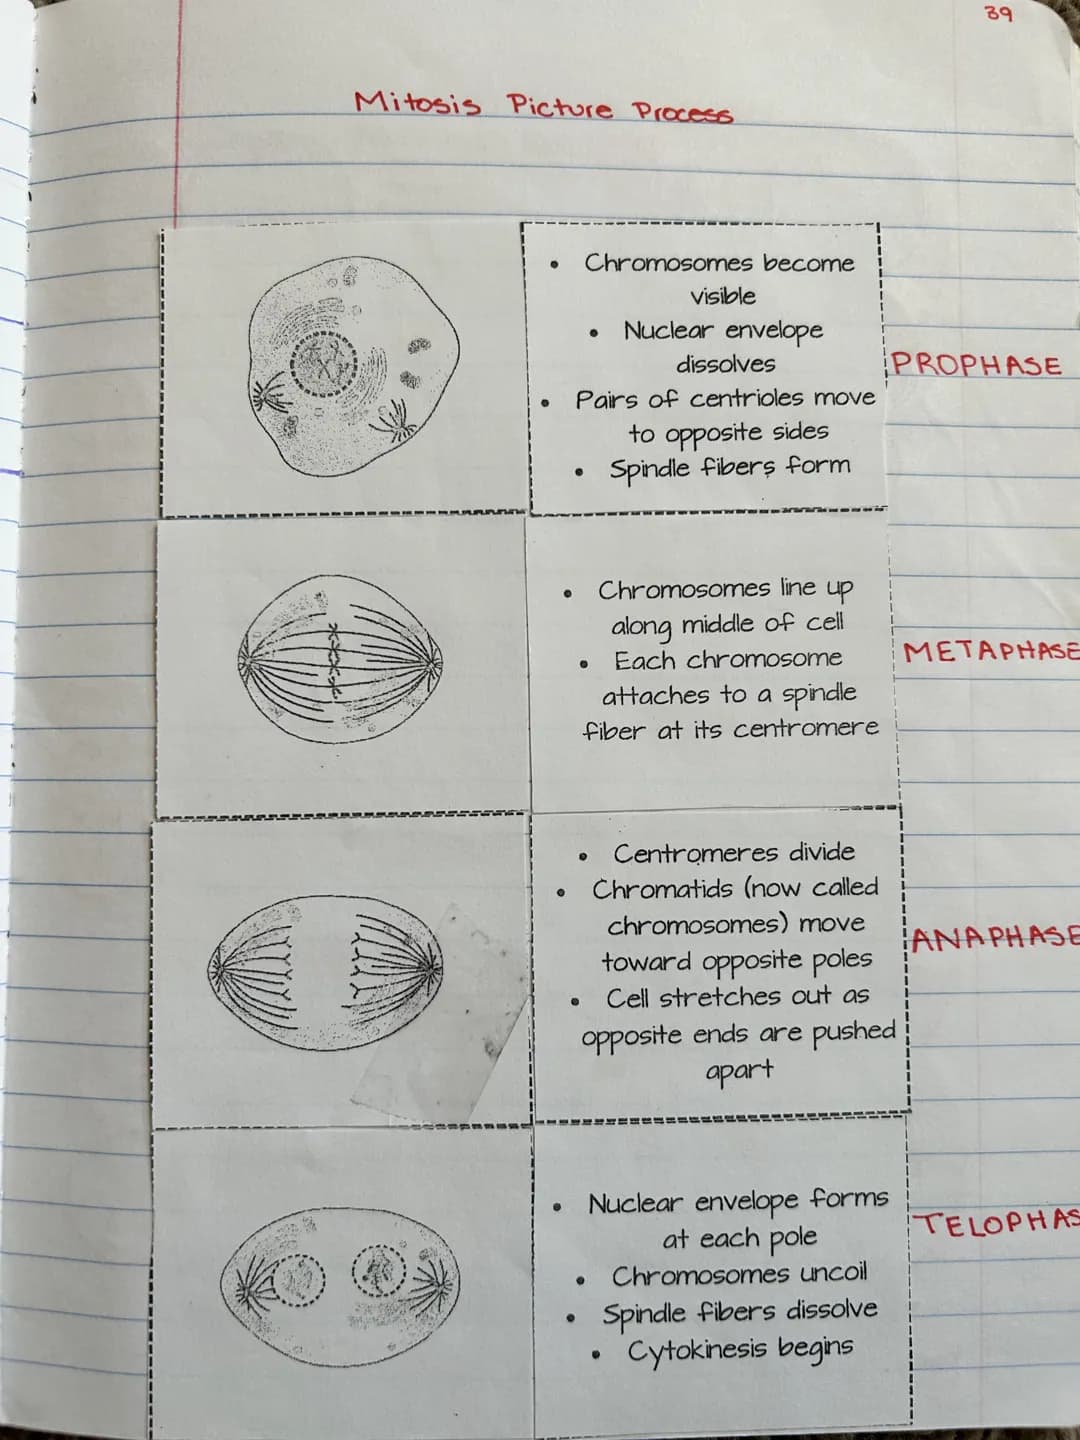 39
Mitosis Picture Process
• Chromosomes become
visible
• Nuclear envelope
dissolves
• Pairs of centrioles move
to opposite sides
• Spindle fibers form
PROPHASE
• Chromosomes line up
along middle of cell
• Each chromosome
attaches to a spindle
fiber at its centromere
METAPHASE
• Centromeres divide
• Chromatids (now called
chromosomes) move
toward opposite poles
• Cell stretches out as
opposite ends are pushed
apart
ANAPHASE
• Nuclear envelope forms
at each pole
• Chromosomes uncoil
• Spindle fibers dissolve
• Cytokinesis begins
TELOPHAS